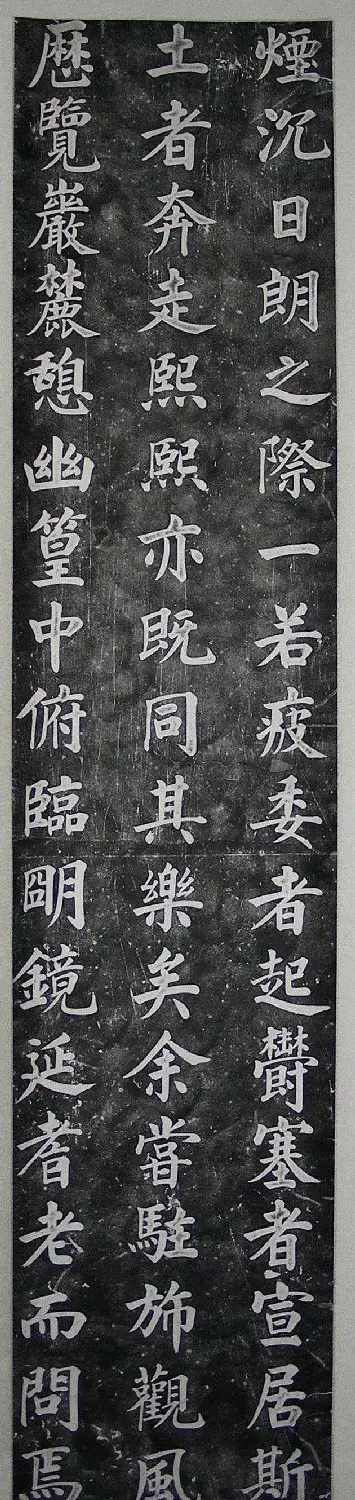 煙沉日朗之際一若疲委者起欝塞者宣居斯
土者奔走熙熙亦既同其樂矣余嘗駐斾觀風
歷覽巖麓憩幽篁中俯臨明鏡延耆老而問焉